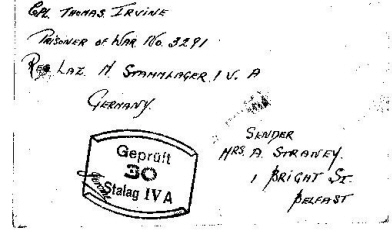 CPL. THOMAS. IRVINE
PRISONER OF WAR NO. 3291
RES. LAZ. M STAMMLAGER IV. A
GERMANY.
Geprüft
30
Stalag IV A
SENDER
MRS. A. STRANEY.
1 BRIGHT ST.
BELFAST